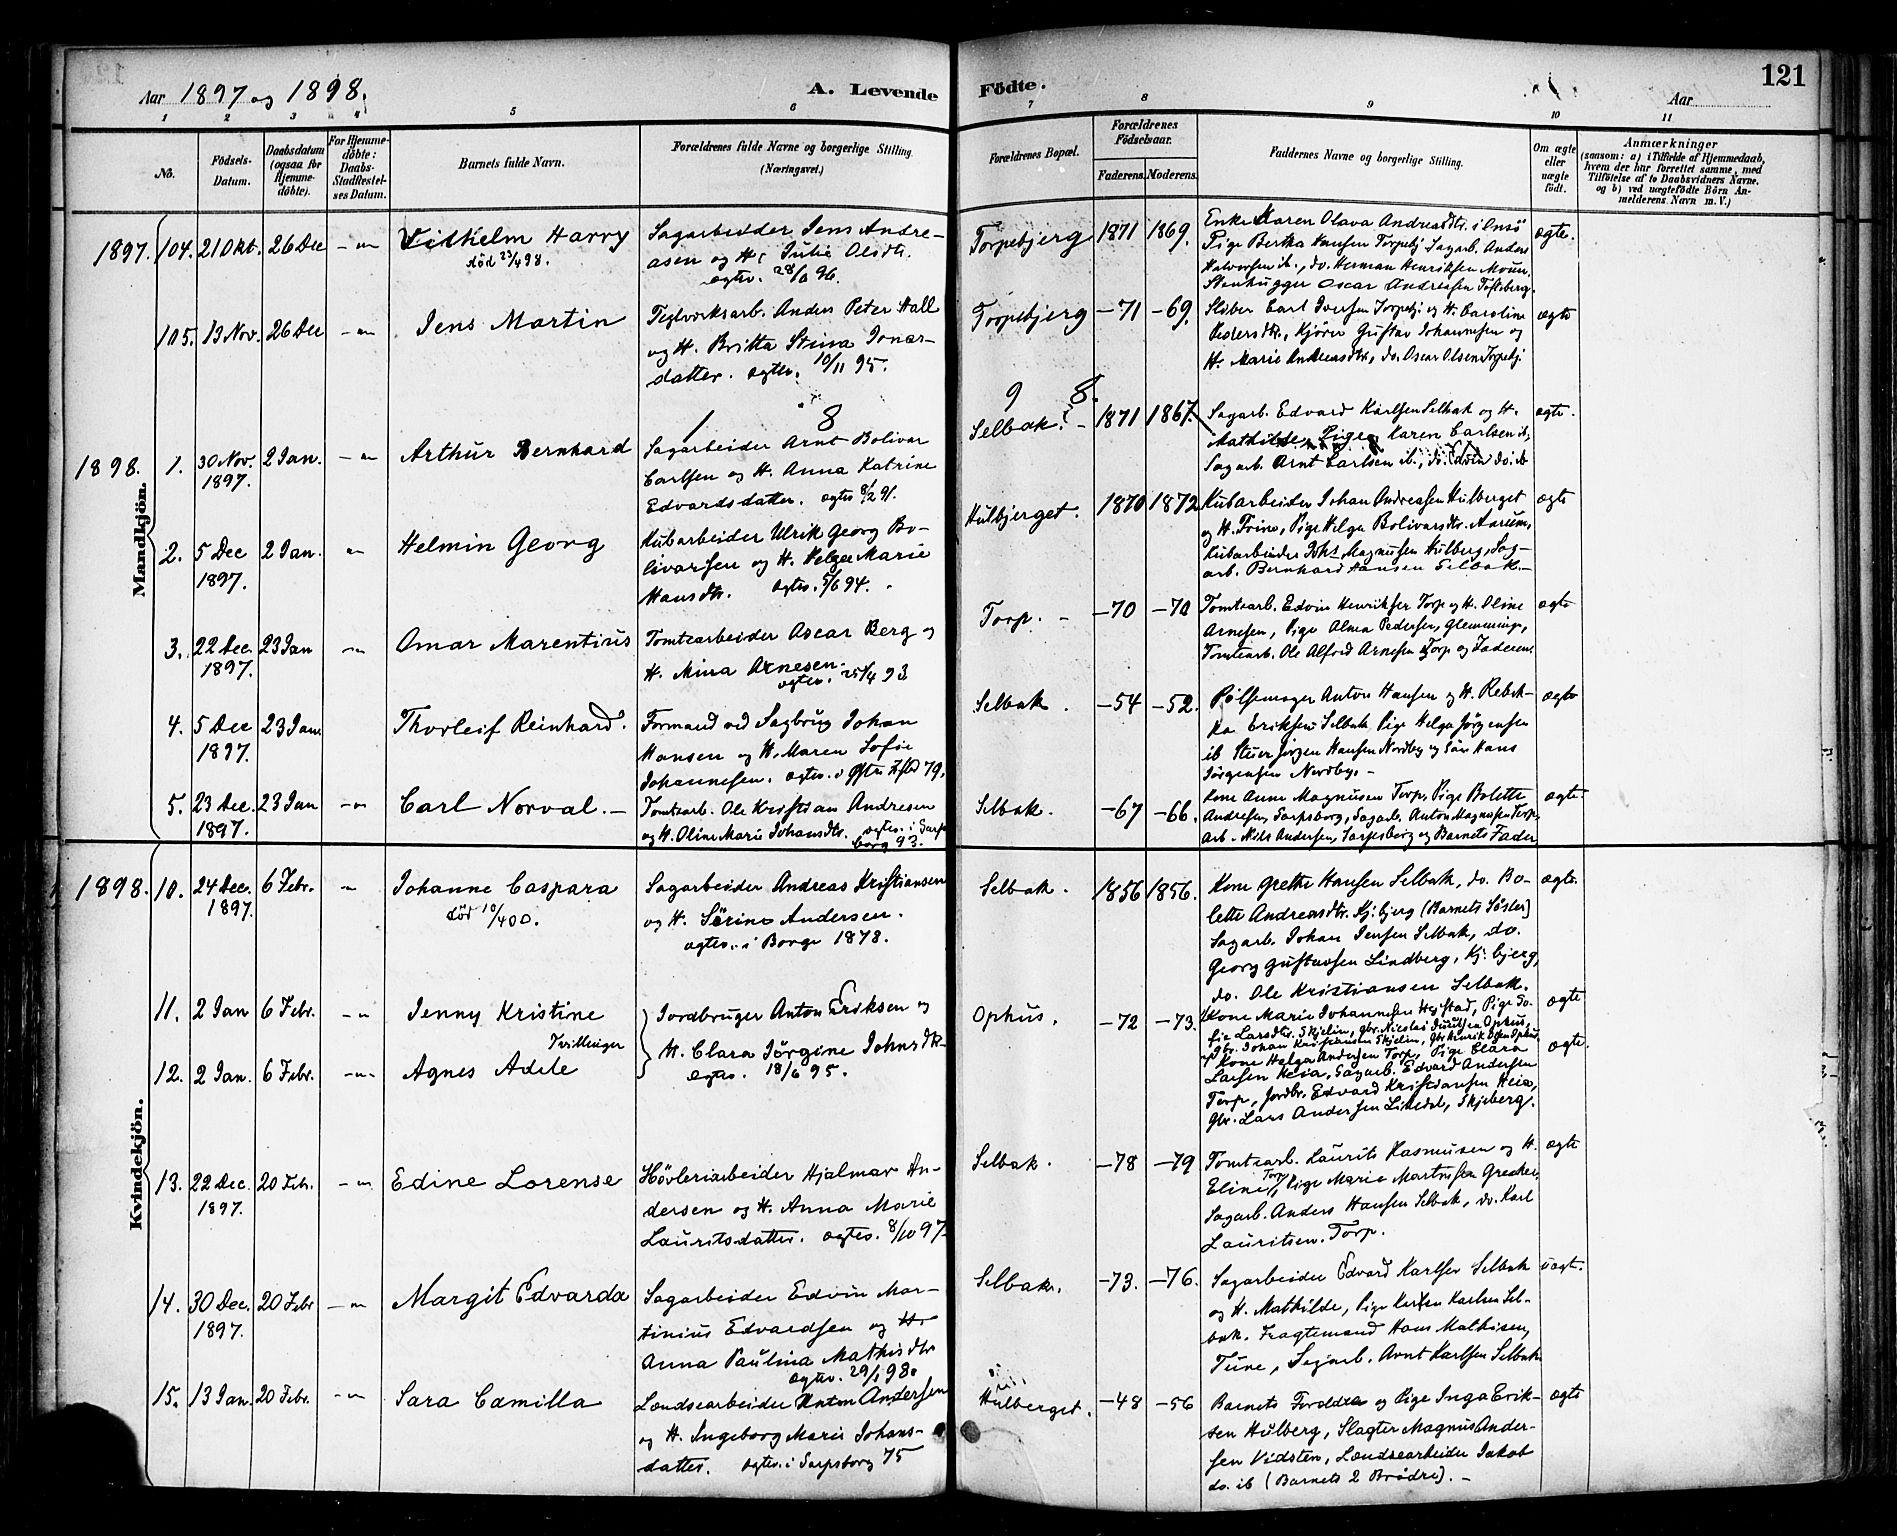 Aar 1897 og 1898.
A. Levende Födte.
121
Aar
1 2 3 4 5 6 7 8 9 10 11
No.
Födsels-
Datum.
Daabsdatum
(ogsaa for
Hjemme-
döbte).
For Hjemme-
döbte:
Daabs-
Stadfæstel-
ses Datum.
Barnets fulde Navn.
Forældrenes fulde Navne og borgerlige Stilling.
(Næringsvei.)
Forældrenes Bopæl.
Forældrenes
Födselsaar.
Faderens. Moderens.
Faddernes Navne og borgerlige Stilling.
Om ægte
eller
uægte
födt.
Anmærkninger
(saasom: a) i Tilfælde af Hjemmedaab,
hvem der har forrettet samme, med
Tilföielse af to Daabsvidners Navne,
og b) ved uægtefödte Börn An-
melderens Navn m. V.)
Mandkjön.
1897. 104. 21 Okt. 26 Dec
Vilhelm Harry
död 23/4 98.
Sagarbeider Jens Andre-
asen og H. Julie Olsdtr.
ægtev. 28/6 96.
Torpebjerg 1871 1869.
Enke Karen Olava Andreasdtr. i Onsö
Pige Bertha Hansen Torpebj. Sagarb. Anders
Halvorsen ib., do. Herman Henriksen Moum.
Stenhugger Oscar Andreasen Tofteberg.
ægte.
105. 13 Nov. 26 Dec
Jens Martin
Teglverksarb. Anders Peter Hall
og H. Britta Stina Jonas-
datter. ægtev. 10/11 95.
Torpebjerg -71 -69.
Sliber Carl Iversen Torpebj. og H. Caroline
Pedersdtr., Kjörer Gustav Johannesen og
H. Marie Andreasdtr., do. Oscar Olsen Torpebj
ægte
1 8 9 8.
1898. 1. 30 Nov. 1897. 2 Jan.
Arthur Bernhard
Sagarbeider Arnt Bolivar
Carlsen og H. Anna Katrine
Edvardsdatter. ægtev 8/2 91.
Selbak. 1871 1867.
Sagarb. Edvard Karlsen Selbak og H.
Mathilde, Pige Karen Carlsen ib,
Sagarb. Arnt Carlsen ib., do. Edvin do. ib
ægte.
2. 5 Dec 1897. 2 Jan.
Helmin Georg
Kubarbeider Ulrik Georg Bo-
livarsen og H. Helga Marie
Hansdtr. ægtev. 5/6 94.
Hulbjerget. 1870 1872
Kubarbeider Johan Andreasen Hulberget
og H. Trine, Pige Helga Bolivarsdtr. Aarum,
Kubarbeider Johs Magnusen Hulberg, Sag-
arb. Bernhard Hansen Selbak.
ægte
3. 22 Dec. 1897. 23 Jan
Omar Marentius
Tomtearbeider Oscar Berg og
H. Mina Arnesen.
ægtev. 25/4 93
Torp. -70 -70
Tomtearb. Edvin Henriksen Torp og H. Oline
Arnesen, Pige Alma Pedersen, Glemminge,
Tomtearb. Ole Alfred Arnesen Torp og Faderen.
ægte
4. 5 Dec 1897. 23 Jan.
Thorleif Reinhard.
Formand ved Sagbrug Johan
Hansen og H. Maren Sofie
Johannesen. ægtev. i Østre Fr.stad 79.
Selbak. -54 -52.
Pölsemager Anton Hansen og H. Rebek-
ka Eriksen Selbak Pige Helga Jörgensen
ib Stuer Jörgen Hansen Nordby og Sön Hans
Jörgensen Nordby.
ægte
5. 23 Dec. 1897. 23 Jan
Carl Norval.
Tomtearb. Ole Kristian Andresen
og H. Oline Marie Johansdtr. ægtev. i Sarps
borg 93.
Selbak. -67 -66.
Kone Anne Magnusen Torp, Pige Bolette
Andresen, Sarpsborg, Sagarb. Anton Magnusen Torp,
arb. Niels Andersen, Sarpsborg og Barnets Fader
ægte
Kvindekjön.
1898. 10. 24 Dec. 1897. 6 Febr.
Johanne Caspara
död 10/4 00.
Sagarbeider Andreas Kristiansen
og H. Sörine Andersen.
ægtev. i Borge 1878.
Selbak. 1856 1856.
Kone Grethe Hansen Selbak, do. Bo-
lette Andreasdtr. Kj.bjerg (Barnets Söster)
Sagarb. Johan Jensen Selbak, do.
Georg Gustavsen Lindberg, Kj.bjerg,
do. Ole Kristiansen Selbak.
ægte.
11. 2 Jan 6 Febr.
Jenny Kristine
Tvillinger
12. 2 Jan. 6 Febr.
Agnes Adele
Jordbruger Anton Eriksen og
H. Clara Jörgine Johnsdtr.
ægtev. 18/6 95.
Ophus. -72 -73.
Kone Marie Johannesen Hegstad, Pige So-
fie Larsdtr. Skjelin, gbr. Nicolai Ophus,
gbr. Johan Kristiansen Skjelin, Ophus
Kone Helga Andersen Torp, Pige Clara
Larsen Heia, Sagarb. Edvard Andersen
Torp, Jordbr. Edvard Kristiansen Heia,
Gbr. Lars Andersen Lilledal, Skjeberg.
ægte
ægte.
13. 22 Dec. 1897. 20 Febr.
Edine Lorense
Høvleriarbeider Hjalmar An-
dersen og H. Anna Marie
Lauritsdatter. ægtev. 8/10 97
Selbak. -78 -79
Tomtearb. Laurits Rasmusen og H.
Eline Torp, Pige Marie Martinsen Greaker,
Sagarb. Anders Hansen Selbak, do. Karl
Lauritsen. Torp.
ægte
14. 30 Dec. 1897. 20 Febr
Margit Edvarda
Sagarbeider Edvin Mar-
tinius Edvardsen og H.
Anna Paulina Mathisdtr
ægtev. 29/1 98.
Selbak. -73. -76.
Sagarbeider Edvard Karlsen Selbak
og H. Mathilde, Pige Karen Karlsen Sel-
bak. Fragtemand Hans Mathisen,
Tune, Sagarb. Arnt Karlsen Selbak
uægt.
15. 13 Jan. 20 Febr.
Sara Camilla
Lændsearbeider Anton Andersen
og H. Ingeborg Marie Johans-
datter. ægtev. i Sarpsborg 75
Hulberget. -48 -56
Barnets Forældre og Pige Inga Erik-
sen Hulberg, Slagter Magnus Ander-
sen Vidsten, Lændsearbeider Jakob
do. ib (Barnets 2 Brödre).
ægte